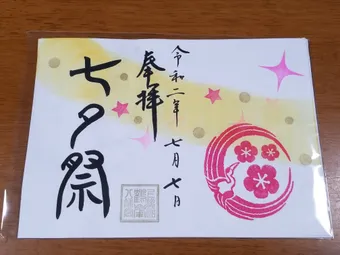 令和二年 七月七日
奉拝
七夕祭